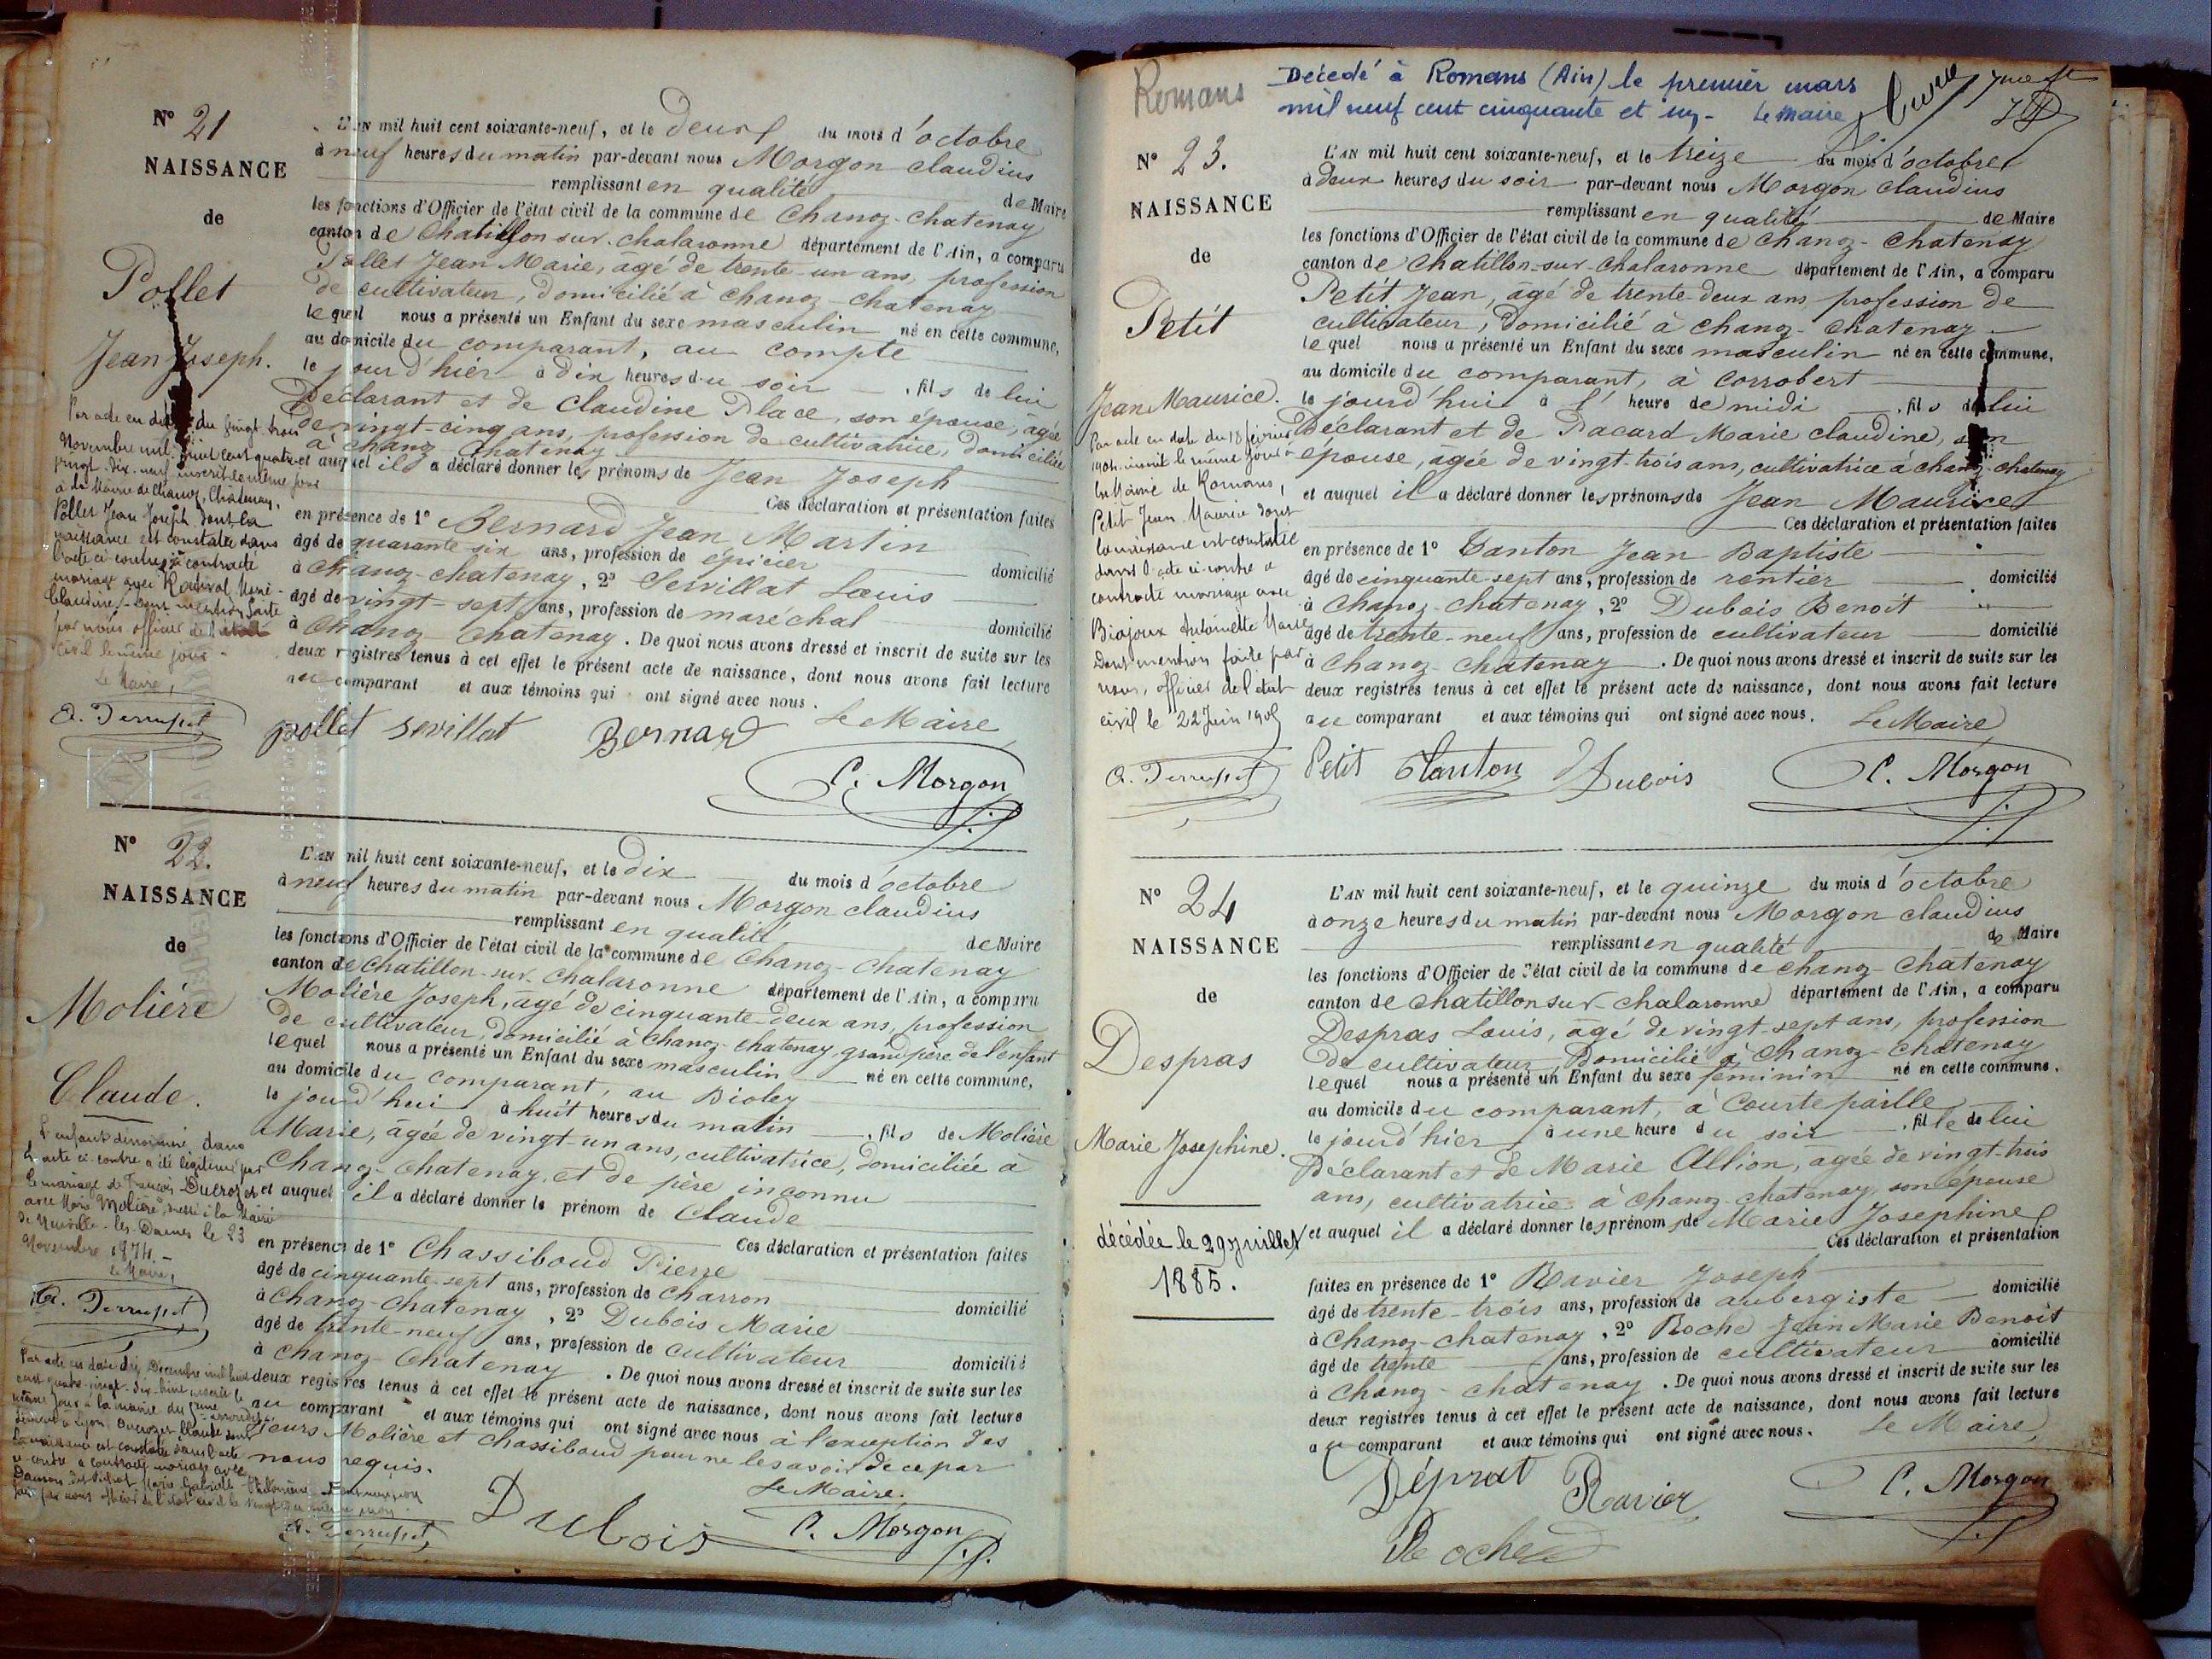 N° 21
NAISSANCE
de
Pollet
Jean Joseph.
L'AN mil huit cent soixante-neuf, et le deux du mois d'octobre
à neuf heures du matin par-devant nous Morgon Claudius
remplissant en qualité de Maire
les fonctions d'Officier de l'état civil de la commune de Chanoz-Chatenay
canton de Chatillon-sur-Chalaronne département de l'Ain, a comparu
Pollet Jean Marie, âgé de trente-un ans, profession
de cultivateur, domicilié à Chanoz-Chatenay
lequel nous a présenté un Enfant du sexe masculin né en cette commune,
au domicile du comparant, au compte
le jourd'hier à dix heures du soir, fils de lui
Déclarant et de Claudine Place, son épouse, âgée
de vingt-cinq ans, profession de cultivatrice, domiciliée
à Chanoz-Chatenay
et auquel il a déclaré donner les prénoms de Jean Joseph
Ces déclaration et présentation faites
en présence de 1° Bernard Jean Martin
âgé de quarante-six ans, profession de épicier domicilié
à Chanoz-Chatenay, 2° Sévillat Louis
âgé de vingt-sept ans, profession de maréchal domicilié
à Chanoz-Chatenay. De quoi nous avons dressé et inscrit de suite sur les
deux registres tenus à cet effet le présent acte de naissance, dont nous avons fait lecture
au comparant et aux témoins qui ont signé avec nous.
Le Maire
pollet sevillat Bernard
C. Morgon
Par acte en date du vingt-trois
Novembre mil huit cent quatre-
vingt-dix-neuf inscrit le même jour
à la Mairie de Chanoz-Châtenay,
Pollet Jean Joseph dont la
naissance est constatée dans
l'acte ci-contre a contracté
mariage avec
Claudine. Dont mention faite
par nous officier de l'état
civil le même jour
Le Maire,
N° 22.
NAISSANCE
de
Molière
Claude.
L'AN mil huit cent soixante-neuf, et le dix du mois d'octobre
à neuf heures du matin par-devant nous Morgon Claudius
remplissant en qualité de Maire
les fonctions d'Officier de l'état civil de la commune de Chanoz-Chatenay
canton de Chatillon-sur-Chalaronne département de l'Ain, a comparu
Molière Joseph, âgé de cinquante-deux ans, profession
de cultivateur, domicilié à Chanoz-Chatenay, grand père de l'enfant
lequel nous a présenté un Enfant du sexe masculin né en cette commune,
au domicile du comparant, au Bioley
le jourd'hui à huit heures du matin, fils de Molière
Marie, âgée de vingt-un ans, cultivatrice, domiciliée à
Chanoz-Chatenay, et de père inconnu
et auquel il a déclaré donner le prénom de Claude
Ces déclaration et présentation faites
en présence de 1° Chassiboud Pierre
âgé de cinquante-sept ans, profession de charron domicilié
à Chanoz-Chatenay, 2° Dubois Marie
âgé de trente-neuf ans, profession de cultivateur domicilié
à Chanoz-Chatenay. De quoi nous avons dressé et inscrit de suite sur les
deux registres tenus à cet effet le présent acte de naissance, dont nous avons fait lecture
au comparant et aux témoins qui ont signé avec nous à l'exception des
sieurs Molière et Chassiboud pour ne les avoir de ce par
nous requis.
Le Maire.
Dubois C. Morgon
L'enfant dénommé dans
l'acte ci-contre a été légitimé par
le mariage de François Ducrozet
avec Marie Molière, dressé à la Mairie
de Neuville-les-Dames le 23
Novembre 1874.
Le Maire,
Romans
Décédé à Romans (Ain) le premier mars
mil neuf cent cinquante et un - Le Maire
N° 23.
NAISSANCE
de
Petit
Jean Maurice.
L'AN mil huit cent soixante-neuf, et le treize du mois d'octobre
à deux heures du soir par-devant nous Morgon Claudius
remplissant en qualité de Maire
les fonctions d'Officier de l'état civil de la commune de Chanoz-Chatenay
canton de Chatillon-sur-Chalaronne département de l'Ain, a comparu
Petit Jean, âgé de trente-deux ans, profession de
cultivateur, domicilié à Chanoz-Chatenay
lequel nous a présenté un Enfant du sexe masculin né en cette commune,
au domicile du comparant, à Corrobert
le jourd'hui à l'heure de midi, fils de lui
Déclarant et de Pacard Marie Claudine, son
épouse, âgée de vingt-trois ans, cultivatrice à Chanoz-Chatenay
et auquel il a déclaré donner les prénoms de Jean Maurice
Ces déclaration et présentation faites
en présence de 1° Tanton Jean Baptiste
âgé de cinquante-sept ans, profession de rentier domicilié
à Chanoz-Chatenay, 2° Dubois Benoit
âgé de trente-neuf ans, profession de cultivateur domicilié
à Chanoz-Chatenay. De quoi nous avons dressé et inscrit de suite sur les
deux registres tenus à cet effet le présent acte de naissance, dont nous avons fait lecture
au comparant et aux témoins qui ont signé avec nous.
Le Maire
Petit Tanton Dubois C. Morgon
Par acte en date du 18 février
1904 inscrit le même jour à
la Mairie de Romans,
Petit Jean Maurice dont
la naissance est constatée
dans l'acte ci-contre a
contracté mariage avec
Biajoux Antoinette Marie
Dont mention faite par
nous, officier de l'état
civil le 22 Juin 1905
N° 24
NAISSANCE
de
Despras
Marie Josephine.
décédée le 29 juillet
1885.
L'AN mil huit cent soixante-neuf, et le quinze du mois d'octobre
à onze heures du matin par-devant nous Morgon Claudius
remplissant en qualité de Maire
les fonctions d'Officier de l'état civil de la commune de Chanoz-Châtenay
canton de Chatillon-sur-Chalaronne département de l'Ain, a comparu
Despras Louis, âgé de vingt-sept ans, profession
de cultivateur, domicilié à Chanoz-Chatenay
lequel nous a présenté un Enfant du sexe féminin né en cette commune,
au domicile du comparant, à Courtepaille
le jourd'hier à une heure du soir, fille de lui
Déclarant et de Marie Allion, âgée de vingt-trois
ans, cultivatrice à Chanoz-Chatenay, son épouse
et auquel il a déclaré donner les prénoms de Marie Josephine
Ces déclaration et présentation
faites en présence de 1° Ravier Joseph
âgé de trente-trois ans, profession de aubergiste domicilié
à Chanoz-Chatenay, 2° Roche Jean Marie Benoit
âgé de trente ans, profession de cultivateur domicilié
à Chanoz-Chatenay. De quoi nous avons dressé et inscrit de suite sur les
deux registres tenus à cet effet le présent acte de naissance, dont nous avons fait lecture
au comparant et aux témoins qui ont signé avec nous.
Le Maire,
Déprat Ravier C. Morgon
Roche